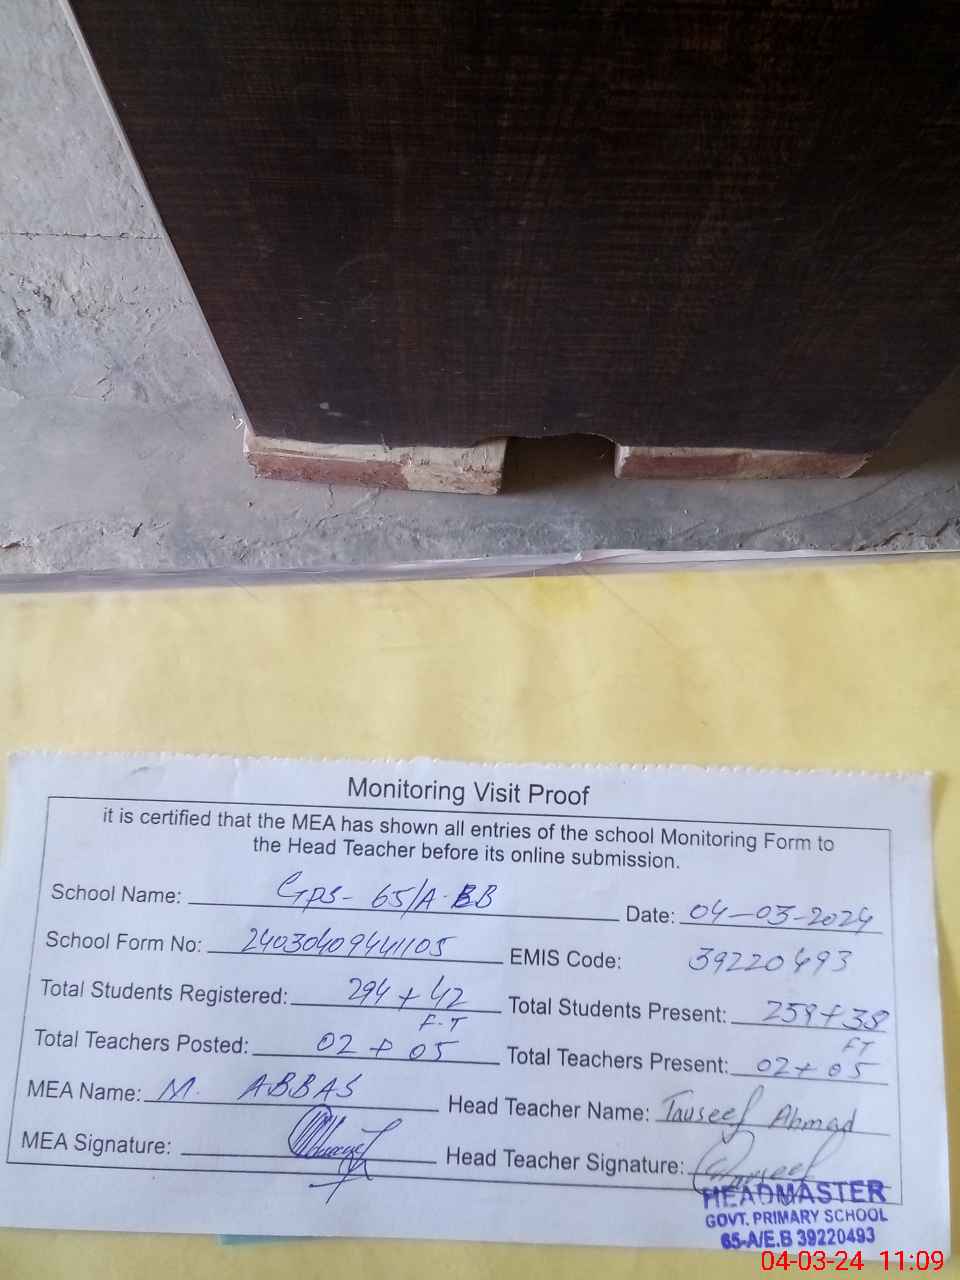 Monitoring Visit Proof
it is certified that the MEA has shown all entries of the school Monitoring Form to
the Head Teacher before its online submission.
School Name: GPS- 65/A-EB Date: 04-03-2024
School Form No: 24030409441105 EMIS Code: 39220493
Total Students Registered: 294 + 42 Total Students Present: 259+38
F.T FT
Total Teachers Posted: 02 + 05 Total Teachers Present: 02+05
MEA Name: M. ABBAS Head Teacher Name: Tauseef Ahmad
MEA Signature: Head Teacher Signature: Tauseef
HEADMASTER
GOVT. PRIMARY SCHOOL
65-A/E.B 39220493
04-03-24 11:09